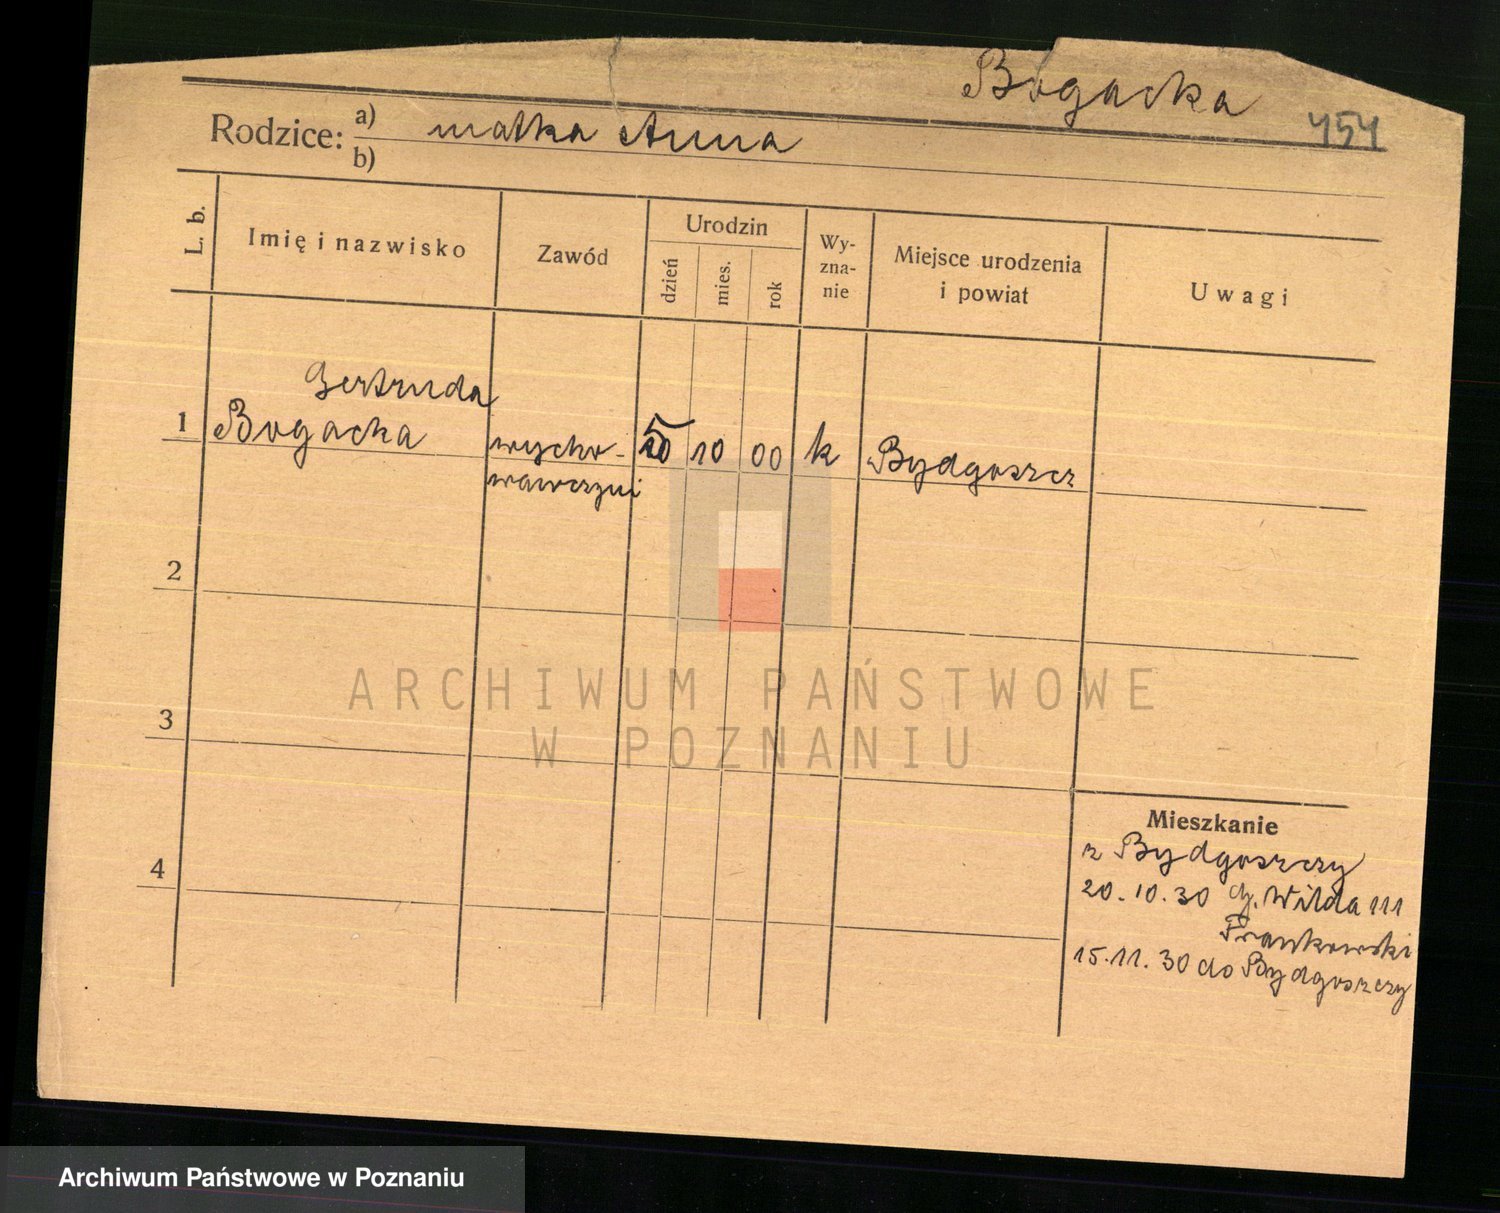 Bogacka
454
Rodzice: a) matka Anna
b)
L. b.
Imię i nazwisko
Zawód
Urodzin
dzień
mies.
rok
Wy-
zna-
nie
Miejsce urodzenia
i powiat
Uwagi
Gertruda
1 Bogacka wycho- 10 00 k Bydgoszcz
wawczyni
2
3
4
ARCHIWUM PAŃSTWOWE
W POZNANIU
Mieszkanie
z Bydgoszczy
20.10.30 G. Wilda 111
Frankowski
15.11.30 do Bydgoszczy
Archiwum Państwowe w Poznaniu